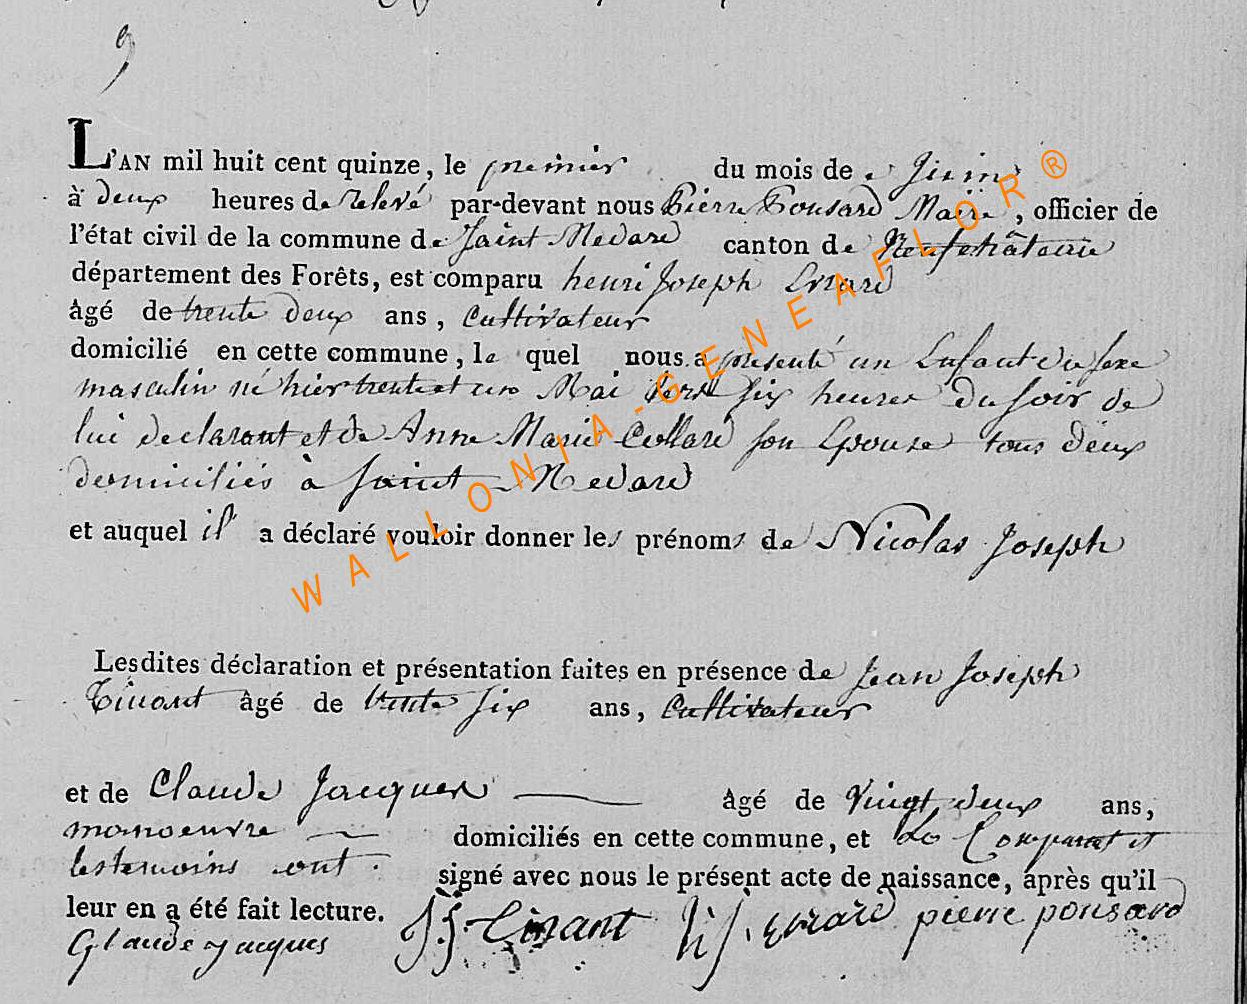 9
L'AN mil huit cent quinze, le premier du mois de Juin
à deux heures de relevé par-devant nous Pierre Ponsard Maire, officier de
l'état civil de la commune de Saint Medard canton de Neufchâteau
département des Forêts, est comparu henri Joseph Evrard
âgé de trente deux ans, Cultivateur
domicilié en cette commune, le quel nous a presenté un Enfant du sexe
masculin né hier trente et un Mai vers six heures du soir de
lui declarant et de Anne Marie Collard son Epouse tous deux
domiciliés à Saint Medard
et auquel il a déclaré vouloir donner les prénoms de Nicolas Joseph
Lesdites déclaration et présentation faites en présence de Jean Joseph
Tinant âgé de trente six ans, Cultivateur
et de Claude Jacques âgé de Vingt deux ans,
manoeuvre domiciliés en cette commune, et Le Comparant et
les temoins ont signé avec nous le présent acte de naissance, après qu'il
leur en a été fait lecture.
Glaude jacques J J Tinant h j evrard pierre ponsard
WALLONIA-GENEAFLOR®